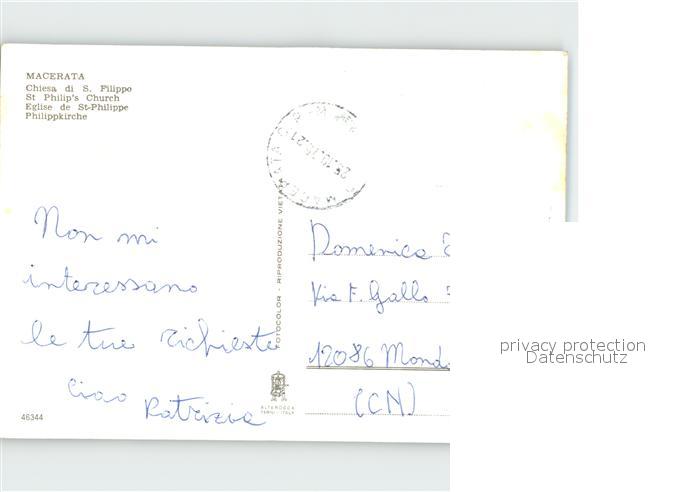 MACERATA
Chiesa di S. Filippo
St Philip's Church
Eglise de St-Philippe
Philippkirche
Non mi
interessano
le tue richieste
Ciao Patrizia
46344
FOTOCOLOR - RIPRODUZIONE VIETATA
ALTEROCCA
TERNI - ITALY
MACERATA
Domenica
Via F. Gallo
12086 Mond
(CN)
privacy protection
Datenschutz